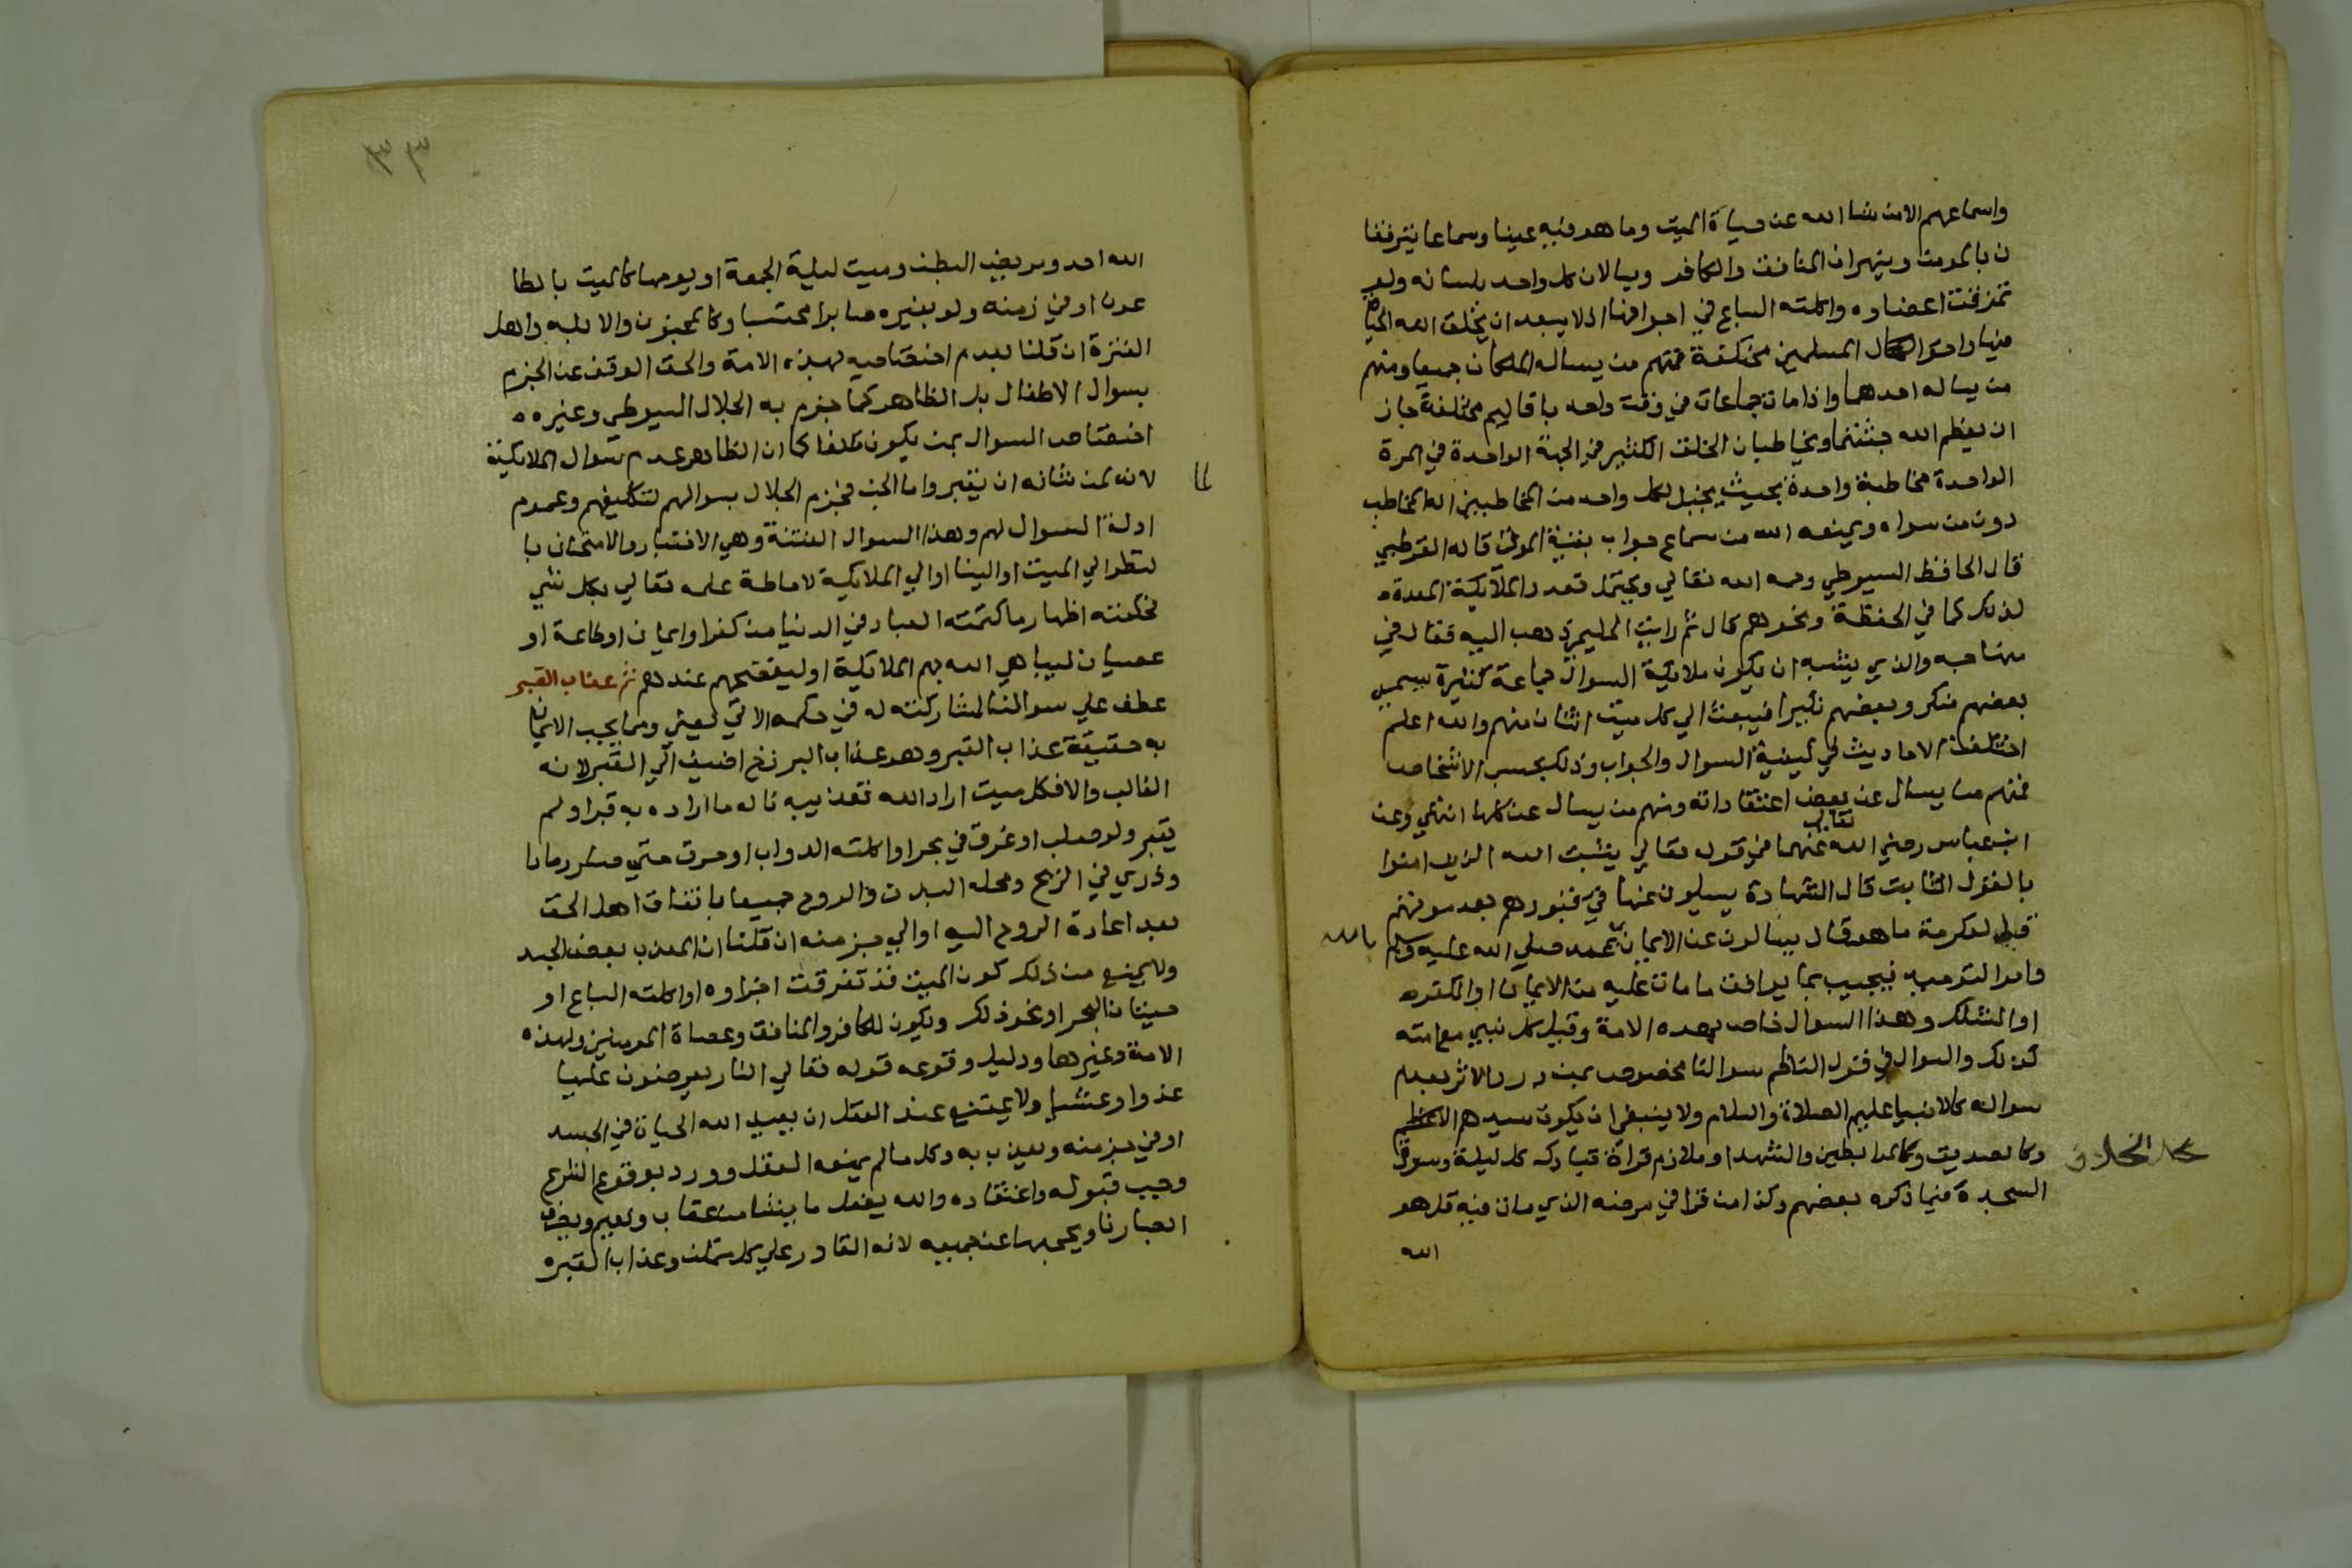 واسماعهم الا من شا الله عن حياة الميت وما هو فيه عينا وسماعا يترفقا
ن بالمومن وينهران المنافق والكافر ويسالان كل واحد بلسانه ولو
تمزقت اعضاوه واكلته السباع في اجوافها اذ لا يبعد ان يخلق الله الحياة
فيها واحوال المسلمين مختلفة فمنهم من يساله الملكان جميعا ومنهم
من يساله احدهما واذا مات جماعات في وقت واحد باقاليم مختلفة جاز
ان يعظم الله جثتهما ويخاطبان الخلق الكثير في الجهة الواحدة في المرة
الواحدة مخاطبة واحدة بحيث يخيل لكل واحد من المخاطبين انه المخاطب
دون من سواه ويمنعه الله من سماع جواب بقية الموتى قاله القرطبي
قال الحافظ السيوطي رحمه الله تعالي ويحتمل تعدد الملايكة المعدة
لذلك كما في الحفظة ونحوهم قال ثم رايت الحليمي ذهب اليه فقال في
منهاجه والذي يشبه ان يكون ملايكة السوال جماعة كثيرة يسمي
بعضهم منكر وبعضهم نكيرا فيبعث الي كل ميت اثنان منهم والله اعلم
اختلفت الاحاديث في كيفية السوال والجواب وذلك بحسب الاشخاص
فمنهم من يسال عن بعض اعتقاداته ومنهم من يسال عن كلها انتهي وعن
تعالي
ابن عباس رضي الله عنهما في قوله تعالي يثبت الله الذين امنوا
بالقول الثابت قال الشهادة يسيلون عنها في قبورهم بعد موتهم
قيل لعكرمة ما هو قال يسالون عن الايمان بمحمد صلي الله عليه وسلم
بالله
وامر التوحيد فيجيب بما يوافق ما مات عليه من الايمان او الكفر
او الشك وهذا السوال خاص بهذه الامة وقيل كل نبي مع امته
كذلك والسوال في قول الناظم سوالنا مخصوص بمن ورد الاثر بعدم
سواله كالانبيا عليهم الصلاة والسلام ولا ينبغي ان يكون سيدهم الاعظم
محل الخلاف
وكالصديق وكالمرابطين والشهدا وملازم قراة تبارك كل ليلة وسورة
السجدة فيما ذكره بعضهم وكذا من قرا في مرضه الذي مات فيه قل هو
الله
٣٣
الله احد ومريض البطن وميت ليلة الجمعة او يومها كالميت بالطا
عون او في زمنه ولو بغيره صابرا محتسبا وكالمجنون والابله واهل
الفترة ان قلنا بعدم اختصاصه بهذه الامة والحق الوقف عن الجزم
بسوال الاطفال بل الظاهر كما جزم به الجلال السيوطي وغيره
اختصاص السوال بمن يكون مكلفا كما ان الظاهر عدم سوال الملايكة
لانه لمن شانه ان يقبر واما الجن فجزم الجلال بسوالهم لتكليفهم وعموم
ادلة السوال لهم وهذا السوال الفتنة وهي الاختبار والامتحان با
لنظر الي الميت او الينا او الي الملايكة لاحاطة علمه تعالي بكل شي
فحكمته اظهار ما كتمته العباد في الدنيا من كفر او ايمان او طاعة او
عصيان ليباهي الله بهم الملايكة او ليفضحهم عندهم ثم عذاب القبر
عطف علي سوالنا لمشاركته له في حكمه الاتي يعني ومما يجب الايمان
به حقيقة عذاب القبر وهو عذاب البرزخ اضيف الي القبر لانه
الغالب والا فكل ميت اراد الله تعذيبه ناله ما اراده به قبر او لم
يقبر ولو صلب او غرق في بحر او اكلته الدواب او حرق حتي صار رمادا
وذري في الريح ومحله البدن والروح جميعا باتفاق اهل الحق
بعد اعادة الروح اليه او الي جز منه ان قلنا ان المعذب بعض الجسد
ولا يمنع من ذلك كون الميت قد تفرقت اجزاوه او اكلته السباع او
حيتان البحر او نحو ذلك ويكون للكافر والمنافق وعصاة المومنين ولهذه
الامة وغيرها ودليل وقوعه قوله تعالي النار يعرضون عليها
غدوا وعشيا ولا يمتنع عند العقل ان يعيد الله الحياة في الجسد
او في جز منه ويعذب به وكل ما لم يمنعه العقل وورد بوقوعه الشرع
وجب قبوله واعتقاده والله يفعل ما يشا من عقاب ونعيم ويصرف
ابصارنا ويحجبها عن جميعه لانه القادر علي كل ممكن وعذاب القبر